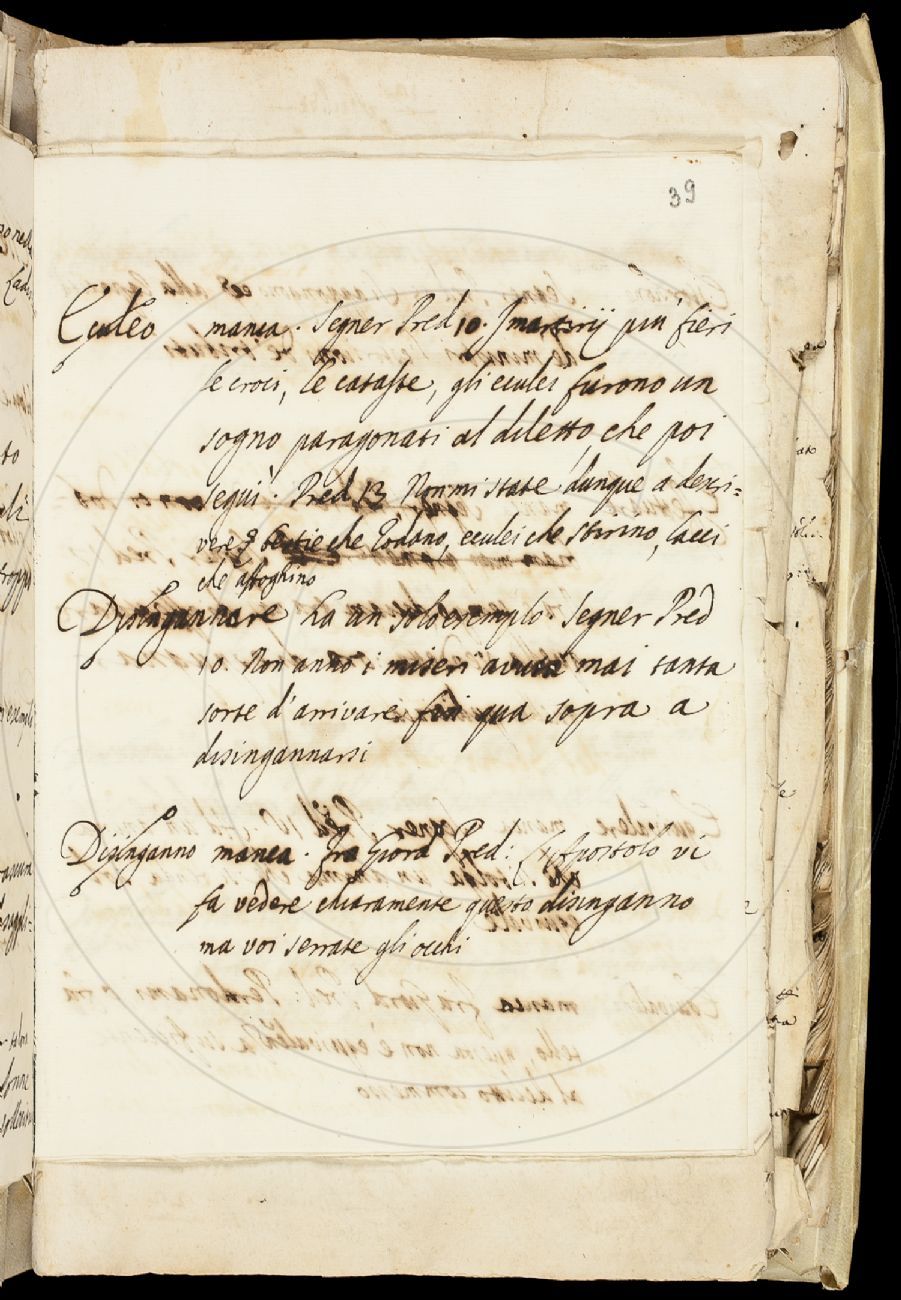 39
Eculeo manca. Segner Pred 10. I martirij più fieri
le croci, le cataste, gli eculei furono un
sogno paragonati al diletto, che poi
seguì. Pred 13 Non mi state dunque a descri=
vere bestie che rodano, eculei che stirino, lacci
che affoghino
Disingannare ha un solo esemplo. Segner Pred
10. Non anno i miseri avuta mai tanta
sorte d'arrivare fin qua sopra a
disingannarsi
Disinganno manca. Fra Giord Pred: Apostolo vi
fa vedere chiaramente questo disinganno
ma voi serrate gli occhi